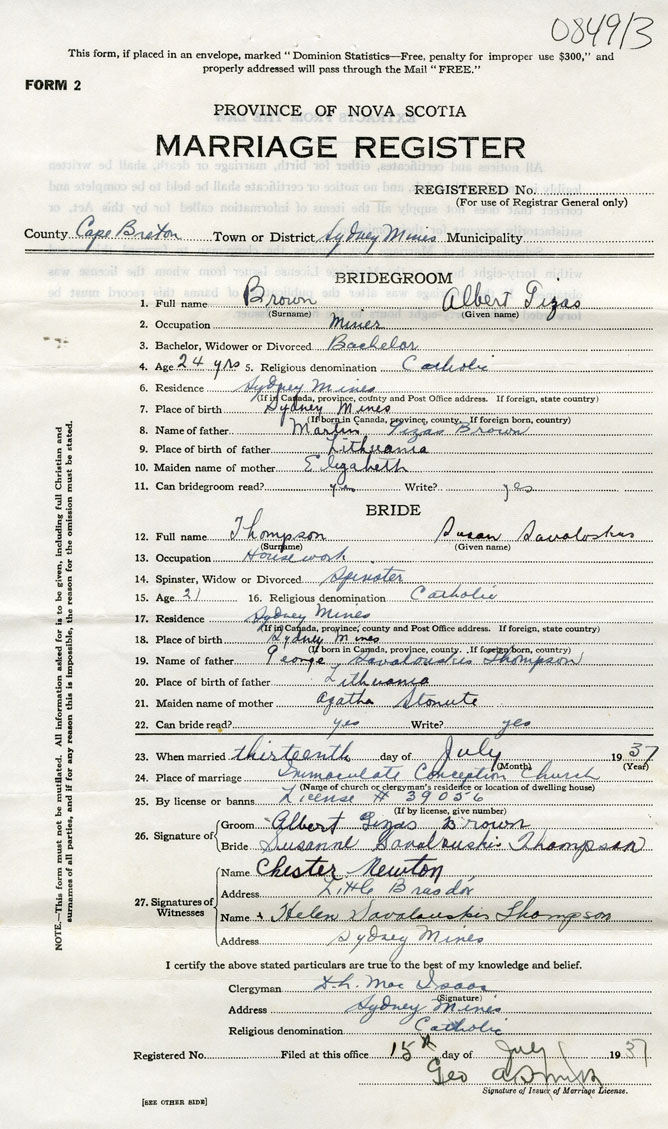 084913
This form, if placed in an envelope, marked "Dominion Statistics—Free, penalty for improper use $300," and
properly addressed will pass through the Mail "FREE."
FORM 2
PROVINCE OF NOVA SCOTIA
MARRIAGE REGISTER
REGISTERED No.
(For use of Registrar General only)
County Cape Breton Town or District Sydney Mines Municipality
BRIDEGROOM
1. Full name Brown Albert Gizas
(Surname) (Given name)
2. Occupation Miner
3. Bachelor, Widower or Divorced Bachelor
4. Age 24 yrs 5. Religious denomination Catholic
6. Residence Sydney Mines
(If in Canada, province, county and Post Office address. If foreign, state country)
7. Place of birth Sydney Mines
(If born in Canada, province, county. If foreign born, country)
8. Name of father Martin Gizas Brown
9. Place of birth of father Lithuania
10. Maiden name of mother Elizabeth
11. Can bridegroom read? yes Write? yes
BRIDE
12. Full name Thompson Susan Savaloskus
(Surname) (Given name)
13. Occupation House work
14. Spinster, Widow or Divorced Spinster
15. Age 21 16. Religious denomination Catholic
17. Residence Sydney Mines
(If in Canada, province, county and Post Office address. If foreign, state country)
18. Place of birth Sydney Mines
(If born in Canada, province, county. If foreign born, country)
19. Name of father George Savalouskis Thompson
20. Place of birth of father Lithuania
21. Maiden name of mother Agatha Stonute
22. Can bride read? yes Write? yes
23. When married thirteenth day of July 1937
(Month) (Year)
24. Place of marriage Immaculate Conception Church
(Name of church or clergyman's residence or location of dwelling house)
25. By license or banns License # 39056
(If by license, give number)
26. Signature of Groom Albert Gizas Brown
Bride Susanne Savalouskis Thompson
27. Signatures of Witnesses Name Chester Newton
Address Little Brasdor
Name Helen Savalouskis Thompson
Address Sydney Mines
I certify the above stated particulars are true to the best of my knowledge and belief.
Clergyman D. h. Mac Isaac
(Signature)
Address Sydney Mines
Religious denomination Catholic
Registered No. Filed at this office 15th day of July 1937
Geo A Smith
Signature of Issuer of Marriage License.
[SEE OTHER SIDE]
NOTE.—This form must not be mutilated. All information asked for is to be given, including full Christian and
surnames of all parties, and if for any reason this is impossible, the reason for the omission must be stated.